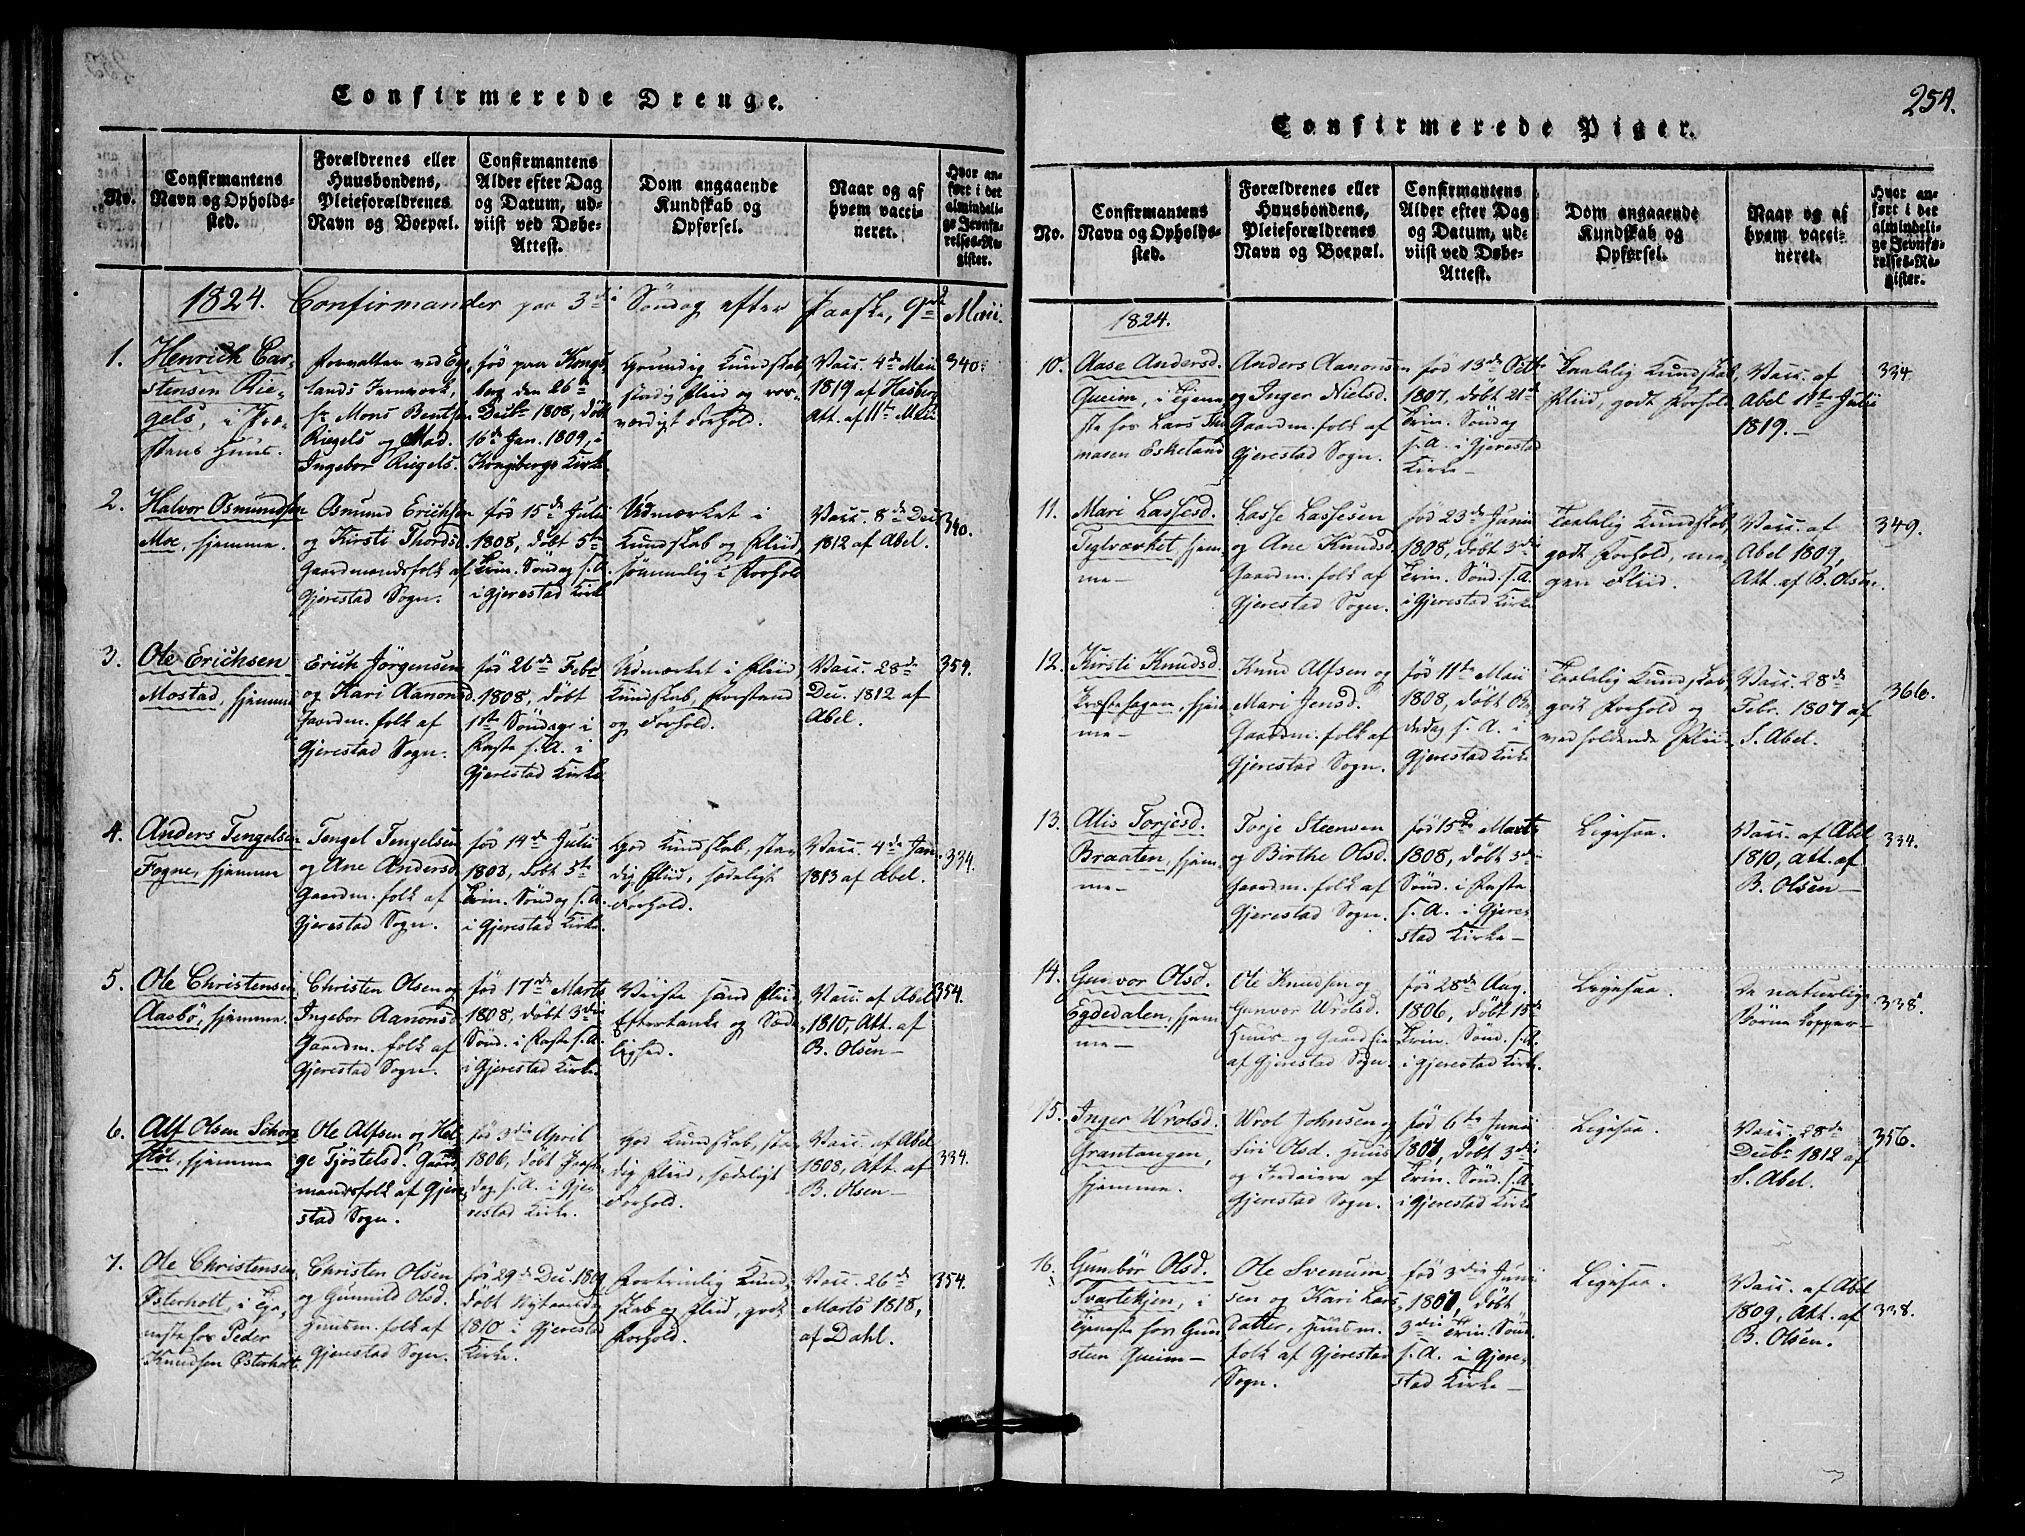 Confirmerede Drenge.
No.
Confirmantens
Navn og Opholds-
sted.
Forældrenes eller
Huusbondens,
Pleieforældrenes
Navn og Boepæl.
Confirmantens
Alder efter Dag
og Datum, ud-
viist ved Døbe-
Attest.
Dom angaaende
Kundskab og
Opførsel.
Naar og af
hvem vacci-
neret.
Hvor an-
ført i det
almindeli-
ge Jevnfø-
relses-Re-
gister.
1824. Confirmander paa 3die Söndag efter Paaske, 9de Maii.
1.
Henrich Car-
stensen Rie-
gels, i Præ-
stens Huus.
Forvalter ved Eg-
lands Jernværk,
Sr. Mons Bentsen
Riegels og Mad.
Ingebor Riegels.
fød paa Kongs-
berg den 26de
Decbr. 1808, döbt
16de Jan. 1809, i
Kongsbergs Kirke
Grundig Kundskab,
stadig Fliid og roes-
værdigt Forhold.
Vacc. 4de Mai
1819 af Hasberg
Att. af 11te Maii
340.
2.
Halvor Osmundsen
Moe, hjemme.
Osmund Erichsen
og Kirsti Thordsd.
Gaardmandsfolk af
Gjerestad Sogn.
fød 15de Julii
1808, döbt 5te
Trin. Söndag s. A.
i Gjerestad Kirke
Udmærket i
Kundskab og Fliid,
sömmelig i Forhold
Vacc. 8de Dec.
1812 af Abel.
340.
3.
Ole Erichsen
Mostad, hjemme
Erich Jörgensen
og Kari Aanonsd.
Gaardm. folk af
Gjerestad Sogn.
fød 26de Febr.
1808, döbt
1ste Söndag i
Faste s. A. i
Gjerestad Kirke
Udmærket i Fliid,
Kundskab, Forstand
og Forhold.
Vacc. 28de
Dec. 1812 af
Abel.
354.
4.
Anders Tengelsen
Fogne, hjemme
Tengel Tengelsen
og Ane Andersd.
Gaardm. folk af
Gjerestad Sogn.
fød 14de Julii
1808, döbt 5te
Trin. Söndag s. A.
i Gjerestad Kirke.
God Kundskab, sta-
dig Fliid, sædeligt
Forhold.
Vacc. 4de Jan.
1813 af Abel.
334.
5.
Ole Christensen
Aasbö, hjemme.
Christen Olsen og
Ingebor Aanonsd.
Gaardm. folk af
Gjerestad Sogn.
fød 17de Marts
1808, döbt 3die
Sönd. i Faste s. A.
i Gjerestad Kirke.
Viiste sand Fliid
Eftertanke og Sæde-
lighed.
Vacc. af Abel
1810, Att. af
B. Olsen—
354.
6.
Alf Olsen
hjemme
Ole Alfsen og Hel-
ge Tjöstelsd. Gaard-
mandsfolk af Gjere-
stad Sogn.
fød 3die April
1806, döbt Paaske-
dag s. A. i Gje-
restad Kirke.
God Kundskab, sta-
dig Fliid, sædeligt
Forhold.
Vacc. af Abel
1808, Att. af
B. Olsen—
334.
7.
Ole Christensen
Østerholt, i Tje-
neste hos Peder
Knudsen Østerholt.
Christen Olsen
og Gunnild Olsd.
Huusm. folk af
Gjerestad Sogn.
fød 29de Dec. 1809
döbt Nytaarsdag
1810 i Gjerestad
Kirke.
Fortrinlig Kund-
skab og Fliid, godt
Forhold.
Vacc. 26de
Marts 1818,
af Dahl.
354.
254.
Confirmerede Piger.
No.
Confirmantens
Navn og Opholds-
sted.
Forældrenes eller
Huusbondens,
Pleieforældrenes
Navn og Boepæl.
Confirmantens
Alder efter Dag
og Datum, ud-
viist ved Døbe-
Attest.
Dom angaaende
Kundskab og
Opførsel.
Naar og af
hvem vacci-
neret.
Hvor an-
ført i det
almindeli-
ge Jevnfø-
relses-Re-
gister.
1824.
10.
Aase Andersd.
Queim, i Tjene-
ste hos Lars Tho-
masen Eskeland
Anders Aanonsen
og Inger Nielsd.
Gaardm. folk af
Gjerestad Sogn.
fød 13de Octbr.
1807, döbt 21de
Trin. Söndag
s. A. i Gjerestad
Kirke—
Taalelig Kundskab,
Fliid, godt Forhold
Vacc. af
Abel 11te Julii
1819.—
334.
11.
Mari Lassesd.
Teglværket, hjem-
me—
Lasse Lassesen
og Ane Knudsd.
Gaardm. folk af
Gjerestad Sogn.
fød 23de Junii
1808, döbt 3die
Trin. Sönd. s. A.
i Gjerestad Kirke
Taalelig Kundskab,
godt Forhold, me-
gen Fliid.
Vacc. af
Abel 1809,
Att. af B. Olsen.
349.
12.
Kirsti Knudsd.
hjem-
me—
Knud Alfsen og
Mari Jensd.
Gaardm. folk af
Gjerestad Sogn.
fød 11te Maii
1808, döbt Be-
dedag s. A. i
Gjerestad Kirke
Taalelig Kundskab,
godt Forhold og
vedholdende Fliid
Vacc. 28de
Febr. 1807 af
S. Abel.
366.
13.
Alis Torjesd.
Braaten, hjem-
me—
Torje Steensen
og Birthe Olsd.
Gaardm. folk af
Gjerestad Sogn.
fød 15de Marts
1808, döbt 3die
Sönd. i Faste
s. A. i Gjere-
stad Kirke—
Ligesaa.
Vacc. af Abel
1810, Att. af
B. Olsen—
334.
14.
Gunvor Olsd.
Egdedalen, hjem-
me—
Ole Knudsen og
Gunvor Wrolsd.
Huus- og
af Gjerestad Sogn.
fød 28de Aug.
1806, döbt 15de
Trin. Sönd. s. A.
i Gjerestad Kirke.
Ligesaa.
De naturlige
Börne Kopper—
338.
15.
Inger Wrolsd.
Grantangen,
hjemme.
Wrol Johnsen og
Siri Olsd. Huus-
og Jordeiere af
Gjerestad Sogn.
fød 6te Junii
1807, döbt 3die
Trin. Sönd. s. A.
i Gjerestad Kirke
Ligesaa.
Vacc. 28de
Decbr. 1812 af
S. Abel.
356.
16.
Gunbör Olsd.
Svartekjen, i
Tjeneste hos Gun-
sten Queim—
Ole Svenum-
sen og Kari Lars-
datter, Huusm.
folk af Gjerestad
Sogn.
fød 3die Junii
1807, döbt
3die Trin. Sönd.
s. A. i Gjere-
stad Kirke—
Ligesaa.
Vacc. af Abel
1809, Att. af
B. Olsen.
338.